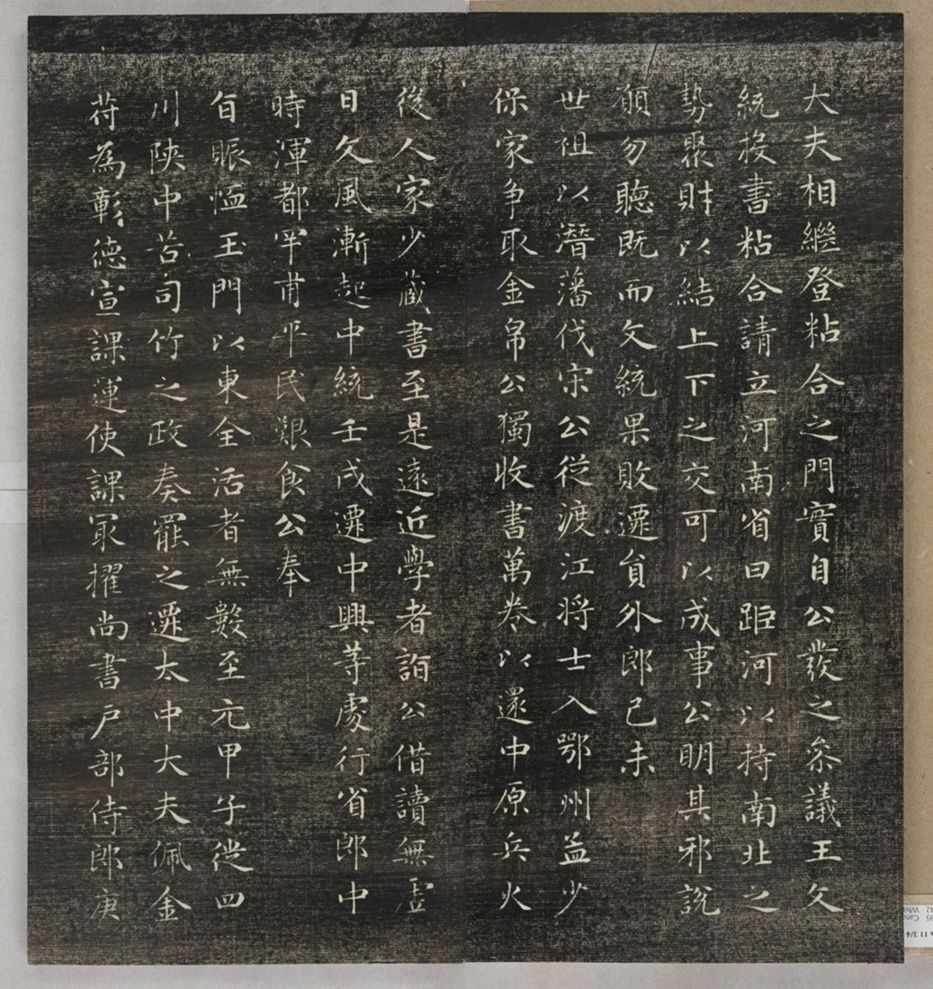 大夫相繼登粘合之門實自公發之參議王文
統投書粘合請立河南省曰距河以持南北之
勢聚財以結上下之交可以成事公明其邪說
願勿聴既而文統果敗遷貟外郎己未
世祖以潛藩伐宋公從渡江將士入鄂州益少
保家爭取金帛公獨收書萬卷以還中原兵火
後人家少蔵書至是遠近學者詣公借讀無虛
日文風漸起中統壬戌遷中興等處行省郎中
時渾都罕甫平民艱食公奉
旨賑恤玉門以東全活者無數至元甲子從四
川陝中苦司竹之政奏罷之遷太中大夫佩金
苻為彰德宣課運使課冣擢尚書戶部侍郎庚